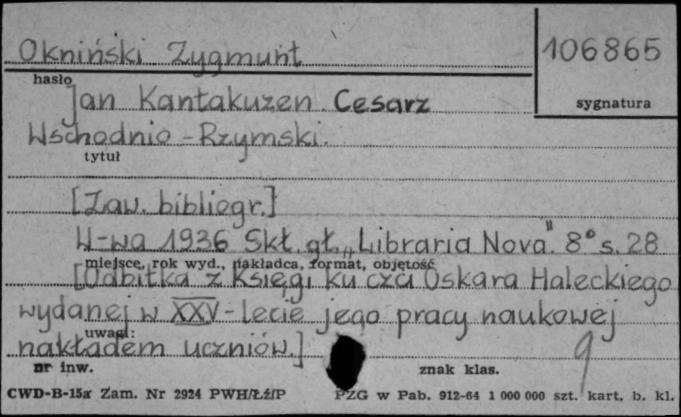 Okniński Zygmunt
106865
hasło
sygnatura
Jan Kantakuzen Cesarz
Wschodnio-Rzymski.
tytuł
[Zaw. bibliogr.]
W-wa 1936 Skł. gł. „Libraria Nova". 8° s. 28
miejsce, rok wyd., nakładca, format, objętość
[Odbitka z Księgi ku czci Oskara Haleckiego
wydanej w XXV-lecie jego pracy naukowej
uwagi:
nakładem uczniów.]
9
nr inw.
znak klas.
CWD-B-15a Zam. Nr 2924 PWH/Łź/P
PZG w Pab. 912-64 1 000 000 szt. kart. b. kl.